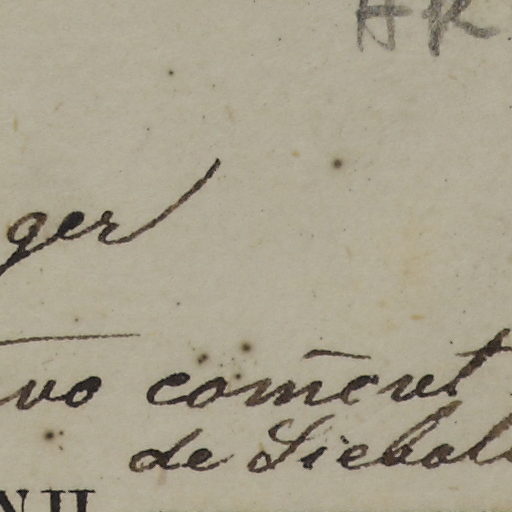 HR
ger
vo com̄ent
de Siebol
NII